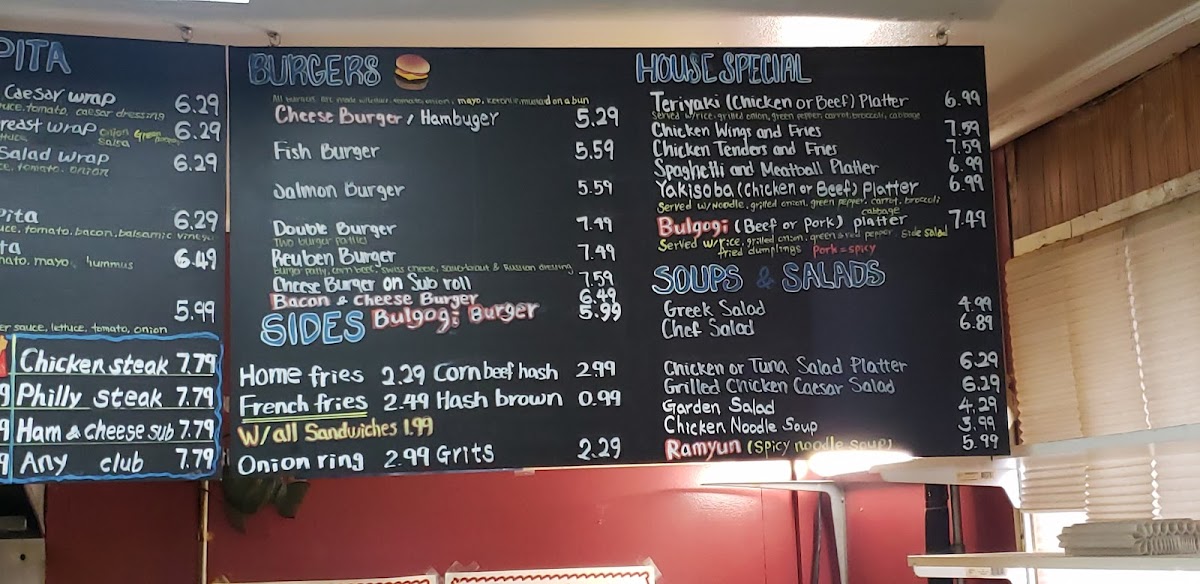 PITA
Caesar wrap 6.29
uce, tomato, caesar dressing
reast wrap onion Green 6.29
salsa
Salad wrap 6.29
ce, tomato, onion
Pita 6.29
uce, tomato, bacon, balsamic
ta 6.49
mato, mayo, hummus
5.99
er sauce, lettuce, tomato, onion
Chicken steak 7.79
9 Philly steak 7.79
9 Ham & cheese sub 7.79
9 Any club 7.79
BURGERS
mayo, on a bun
Cheese Burger / Hambuger 5.29
Fish Burger 5.59
Salmon Burger 5.59
Double Burger 7.49
Two burger patties
Reuben Burger 7.49
Burger patty, corn beef, swiss cheese, & Russian dressing
Cheese Burger on Sub roll 7.59
Bacon & cheese Burger 6.49
Bulgogi Burger 5.99
SIDES
Home fries 2.29 Corn beef hash 2.99
French fries 2.49 Hash brown 0.99
W/all Sandwiches 1.99
Onion ring 2.99 Grits 2.29
HOUSE SPECIAL
Teriyaki (Chicken or Beef) Platter 6.99
Served w/rice, grilled onion, green pepper, carrot, broccoli, cabbage
Chicken Wings and Fries 7.59
Chicken Tenders and Fries 7.59
Spaghetti and Meatball Platter 6.99
Yakisoba (Chicken or Beef) platter 6.99
Served w/Noodle, grilled onion, green pepper, carrot, broccoli
cabbage
Bulgogi (Beef or Pork) platter 7.49
Served w/rice, grilled onion, green & red pepper, side salad
fried dumplings Pork = spicy
SOUPS & SALADS
Greek Salad 4.99
Chef Salad 6.89
Chicken or Tuna Salad Platter 6.29
Grilled Chicken Caesar Salad 6.29
Garden Salad 4.29
Chicken Noodle Soup 3.99
Ramyun (spicy noodle soup) 5.99